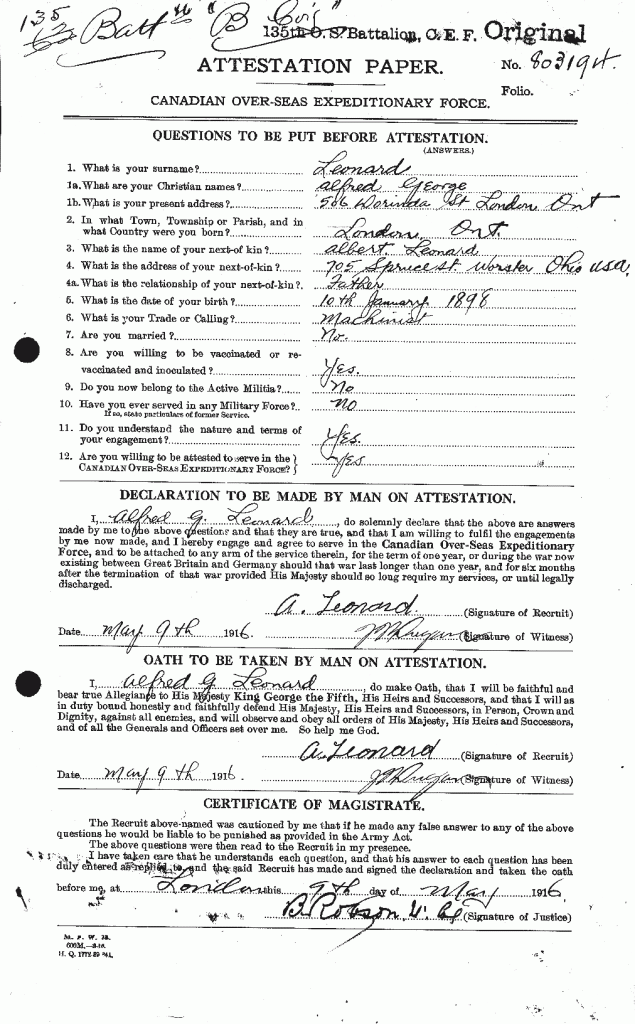 135
Batt "B Coy"
135th O. S. Battalion, C. E. F. Original
ATTESTATION PAPER. No. 803194.
Folio.
CANADIAN OVER-SEAS EXPEDITIONARY FORCE.
QUESTIONS TO BE PUT BEFORE ATTESTATION.
(ANSWERS.)
1. What is your surname? Leonard
1a. What are your Christian names? Alfred George
1b. What is your present address? 506 Dorinda St London Ont
2. In what Town, Township or Parish, and in
what Country were you born? London, Ont.
3. What is the name of your next-of kin? Albert Leonard
4. What is the address of your next-of-kin? 705 Spruce st Worster Ohio USA.
4a. What is the relationship of your next-of-kin? Father
5. What is the date of your birth? 10th January 1898
6. What is your Trade or Calling? Machinist
7. Are you married? No.
8. Are you willing to be vaccinated or re-
vaccinated and inoculated? Yes.
9. Do you now belong to the Active Militia? No
10. Have you ever served in any Military Force? No
If so, state particulars of former Service.
11. Do you understand the nature and terms of
your engagement? Yes.
12. Are you willing to be attested to serve in the
CANADIAN OVER-SEAS EXPEDITIONARY FORCE? Yes
DECLARATION TO BE MADE BY MAN ON ATTESTATION.
I, Alfred G. Leonard, do solemnly declare that the above are answers
made by me to the above questions and that they are true, and that I am willing to fulfil the engagements
by me now made, and I hereby engage and agree to serve in the Canadian Over-Seas Expeditionary
Force, and to be attached to any arm of the service therein, for the term of one year, or during the war now
existing between Great Britain and Germany should that war last longer than one year, and for six months
after the termination of that war provided His Majesty should so long require my services, or until legally
discharged.
A. Leonard (Signature of Recruit)
Date May 9th 1916. (Signature of Witness)
OATH TO BE TAKEN BY MAN ON ATTESTATION.
I, Alfred G Leonard, do make Oath, that I will be faithful and
bear true Allegiance to His Majesty King George the Fifth, His Heirs and Successors, and that I will as
in duty bound honestly and faithfully defend His Majesty, His Heirs and Successors, in Person, Crown and
Dignity, against all enemies, and will observe and obey all orders of His Majesty, His Heirs and Successors,
and of all the Generals and Officers set over me. So help me God.
A. Leonard (Signature of Recruit)
Date May 9th 1916 (Signature of Witness)
CERTIFICATE OF MAGISTRATE.
The Recruit above-named was cautioned by me that if he made any false answer to any of the above
questions he would be liable to be punished as provided in the Army Act.
The above questions were then read to the Recruit in my presence.
I have taken care that he understands each question, and that his answer to each question has been
duly entered as replied to, and the said Recruit has made and signed the declaration and taken the oath
before me, at London this 9th day of May 1916.
B. Robson (Signature of Justice)
M. F. W. 23.
600M.—2-16.
H. Q. 1772-39-841.